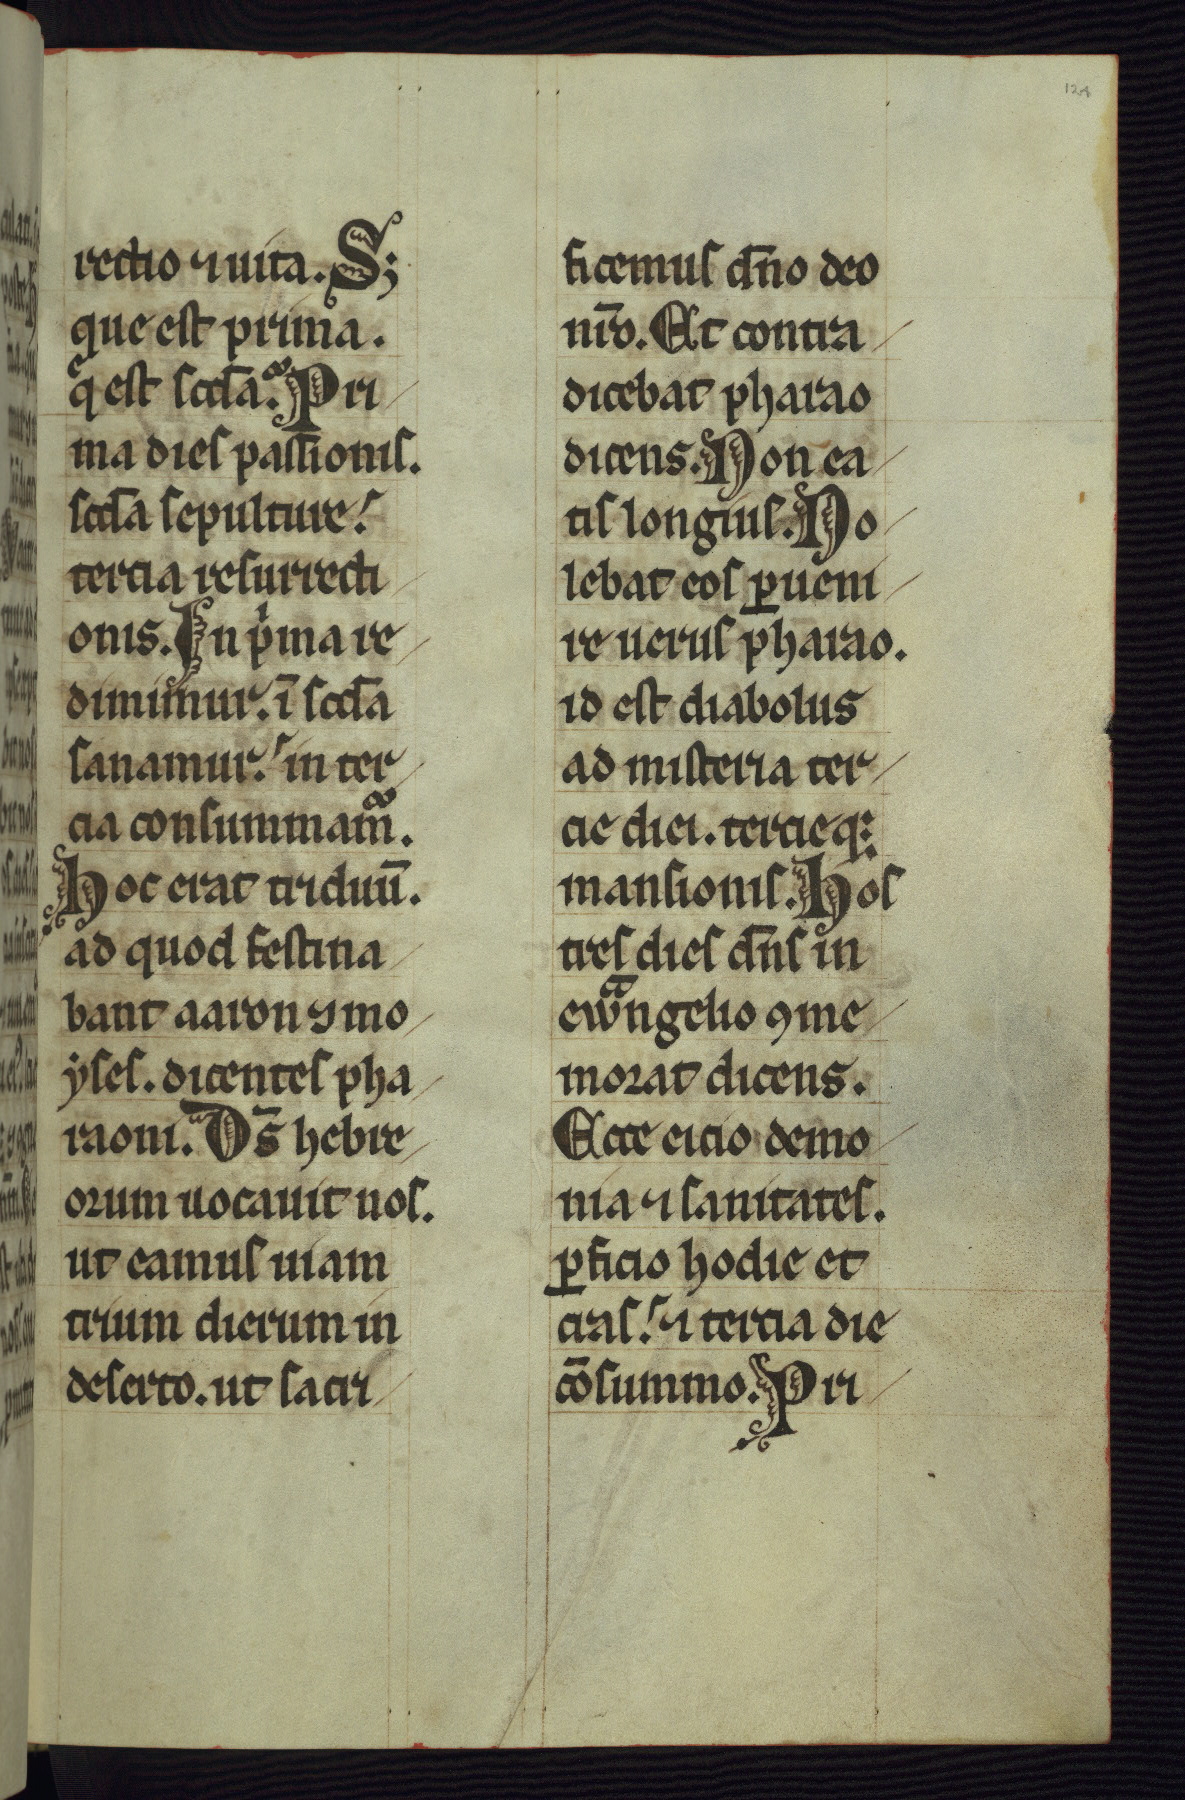 124
rectio ⁊ uita. S;
que est prima.
q̄ est scd̄a. Pri
ma dies passionis.
scd̄a sepulture.
tercia resurrecti
onis. In pͥma re
dimimur. ī scd̄a
sanamur. in ter
cia consummam̄.
Hoc erat triduū.
ad quod festina
bant aaron ⁊ mo
yses. dicentes pha
raoni. Ds̄ hebre
orum uocauit nos.
ut eamus uiam
trium dierum in
deserto. ut sacri
ficemus dn̄o deo
nr̄o. Et contra
dicebat pharao
dicens. Non ea
tis longius. No
lebat eos ꝑueni
re uerus pharao.
id est diabolus
ad misteria ter
cie diei. tercieq;
mansionis. Hos
tres dies dn̄s in
ewͣngelio ꝯme
morat dicens.
Ecce eicio demo
nia ⁊ sanitates.
ꝑficio hodie et
cras. ⁊ tercia die
cōsummo. Pri